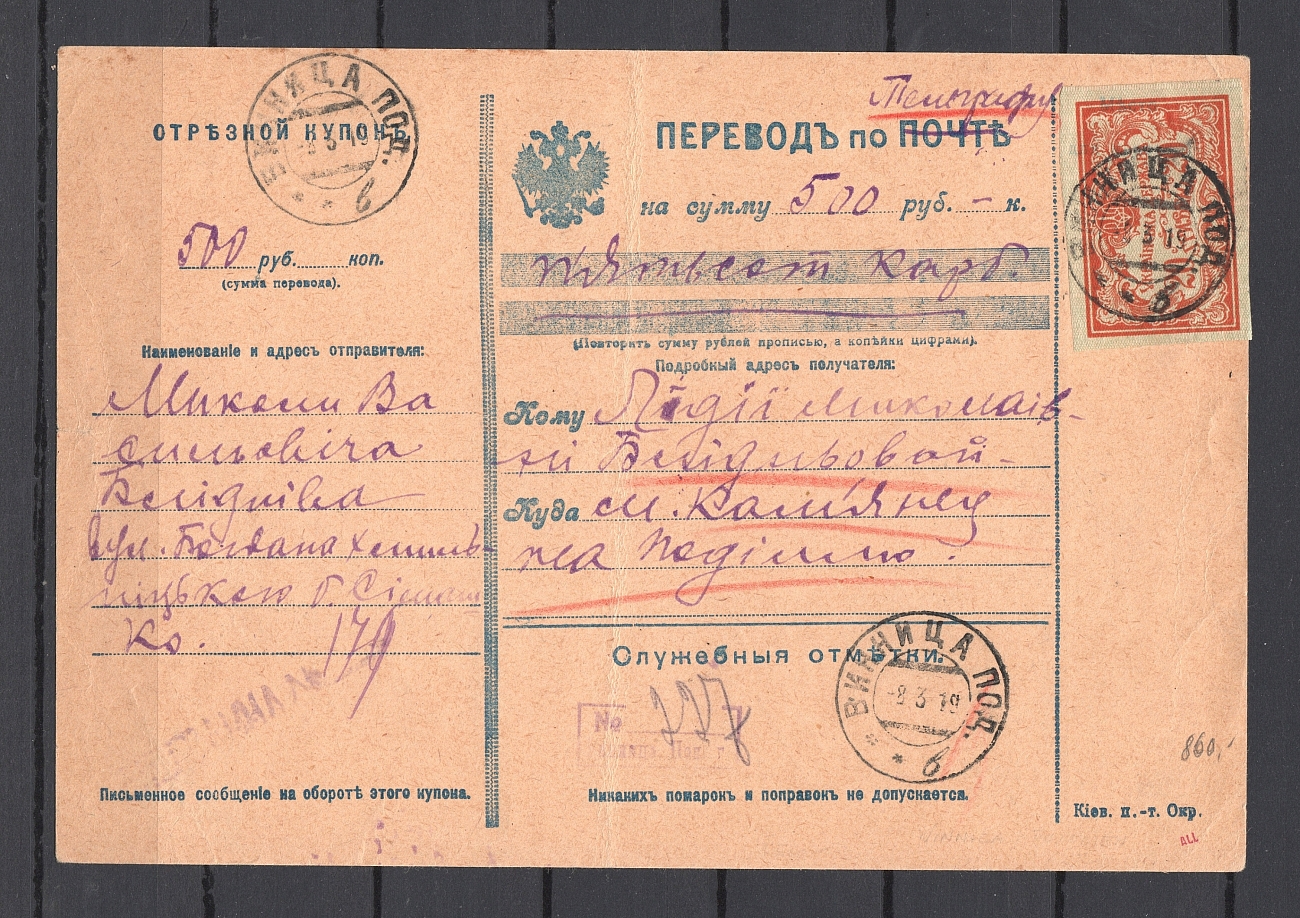 ОТРѢЗНОЙ КУПОНЪ
500 руб. коп.
(сумма перевода).
Наименованіе и адресъ отправителя:
Миколи Ва
сильевича
вул. Богдана Хмель-
ніцького
Ко. 179
Письменное сообщеніе на оборотѣ этого купона.
Телеграфу
ПЕРЕВОДЪ по ПОЧТѢ
на сумму 500 руб. – к.
пятьсот карб.
(Повторить сумму рублей прописью, а копѣйки цифрами).
Подробный адресъ получателя:
Кому Лідії Миколаїв-
ній
Куда м. Камʼянец
на Поділлю.
Служебныя отмѣтки.
№ 227
Никакихъ помарокъ и поправокъ не допускается.
Кіев. п.-т. Окр.
860,-
ВИННИЦА ПОД.
-8 3 19
б
ВИННИЦА ПОД.
3 19
б
ВИННИЦА ПОД.
-8 3 19
б